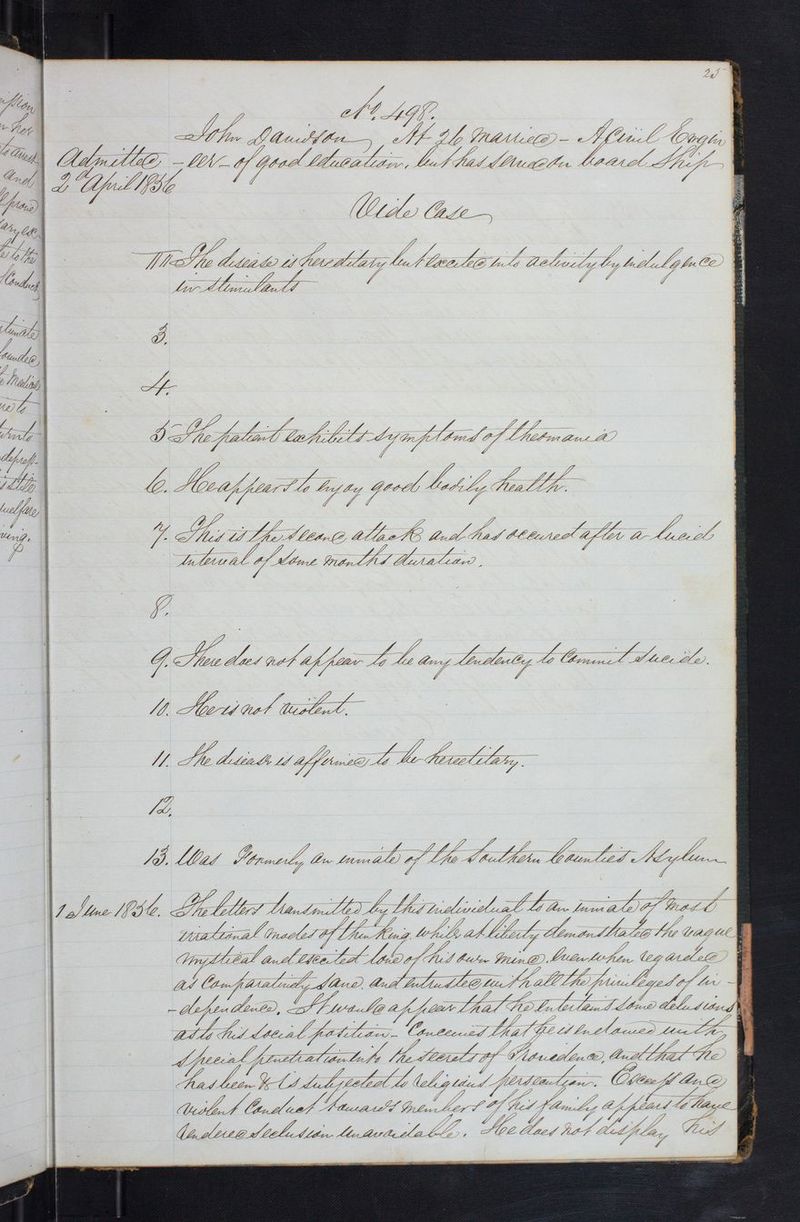 25
No. 498.
John Davidson Æt 26 Married - A Civil Engin
Admitted - eer - of good education, but has served on board Ship
2d April 1856
Vide Case
The disease is hereditary but excited into activity by indulgence
in stimulants
3.
4.
5 The patient exhibits symptoms of theomania
6. He appears to enjoy good bodily health.
7. This is the second attack and has occured after a lucid
interval of some months duration.
8.
9. There does not appear to be any tendency to commit sucide.
10. He is not violent.
11. The disease is affirmed to be hereditary.
12.
13. Was Formerly an inmate of the Southern Counties Asylum
1 June 1856. The letters transmitted by this individual to an inmate of most
irrational modes of thinking while at liberty demonstrated the vague
mystical and excited tone of his own mind, even when regarded
as comparatively sane, and entrusted with all the privileges of in -
- dependence. It would appear that he entertains some delusions
as to his social position - Conceives that he is endowed with
special penetration into the secrets of Providence, and that he
has been & is subjected to religious persecution. Excess and
violent conduct towards members of his family appears to have
rendered seclusion unavoidable. He does not display his